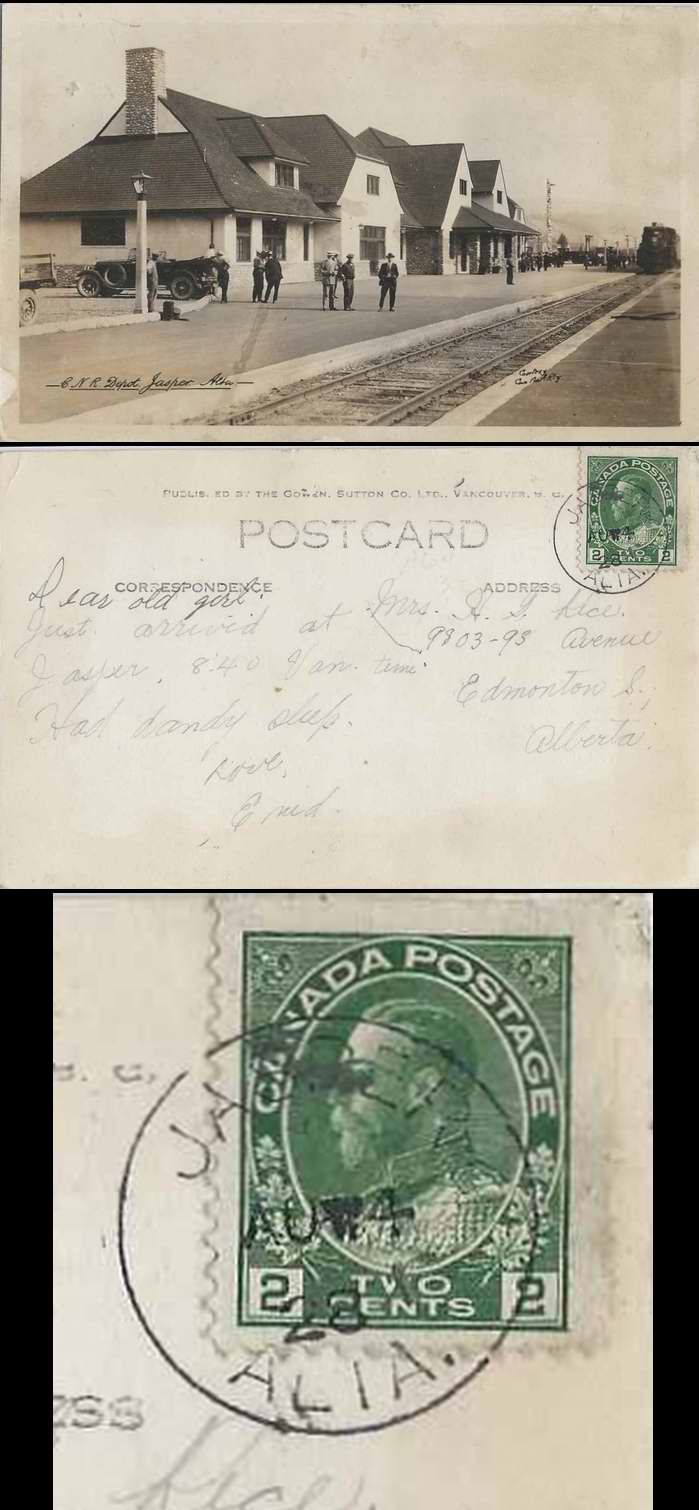 C.N.R. Depot. Jasper Alba
Courtesy
Can. Nat. R'y
PUBLIS.ED BY THE GOWEN, SUTTON CO. LTD., VANCOUVER, B. C.
POSTCARD
CORRESPONDENCE
ADDRESS
Dear old girl:
Just arrived at
Jasper. 8:40 Van. time.
Had dandy sleep.
Love,
Enid.
Mrs. H.
9803-93 Avenue
Edmonton S.,
Alberta.
CANADA POSTAGE
2 TWO CENTS 2
AU 4
28
ALTA.
B. C.
ESS
CANADA POSTAGE
AU 4
2 TWO CENTS 2
28
ALTA.